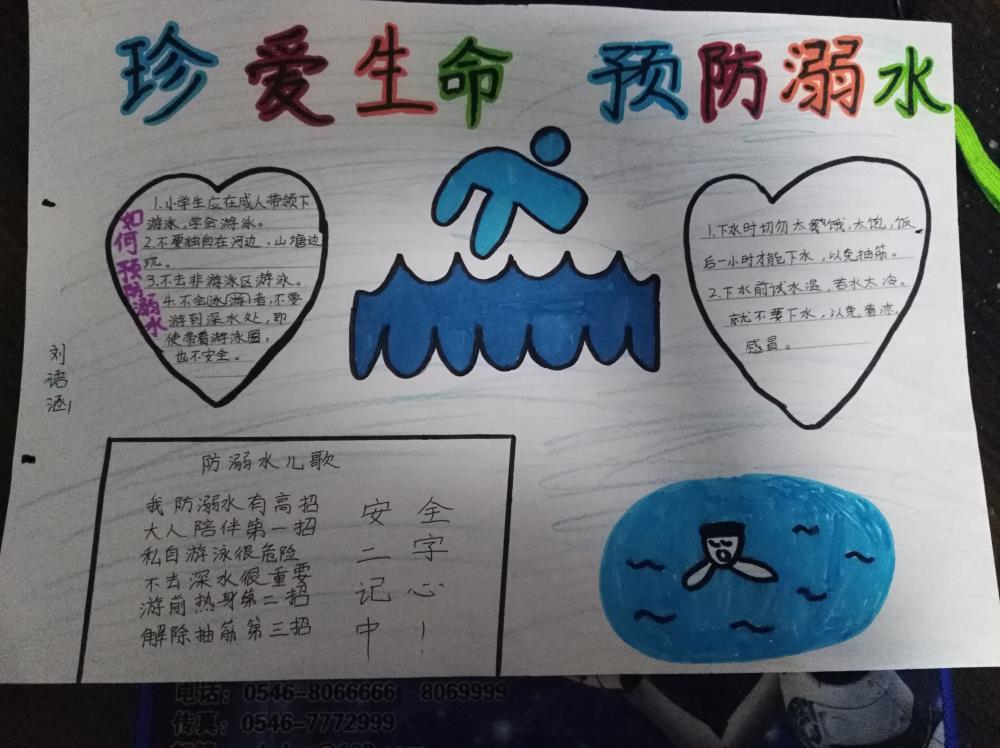 珍爱生命 预防溺水
如何预防溺水
1.小学生应在成人带领下
游泳,学会游泳。
2.不要独自在河边,山塘边
玩。
3.不去非游泳区游泳。
4.不会泳(游)者,不要
游到深水处,即
使带着游泳圈,
也不安全。
1.下水时切勿太饿,太饱,饭
后一小时才能下水,以免抽筋。
2.下水前试水温,若水太冷。
就不要下水,以免着凉,
感冒。
刘语涵
防溺水儿歌
我防溺水有高招
大人陪伴第一招
私自游泳很危险
不去深水很重要
游前热身第二招
解除抽筋第三招
安全
二字
记心
中!
电话:0546-8066666 8069999
传真:0546-7772999